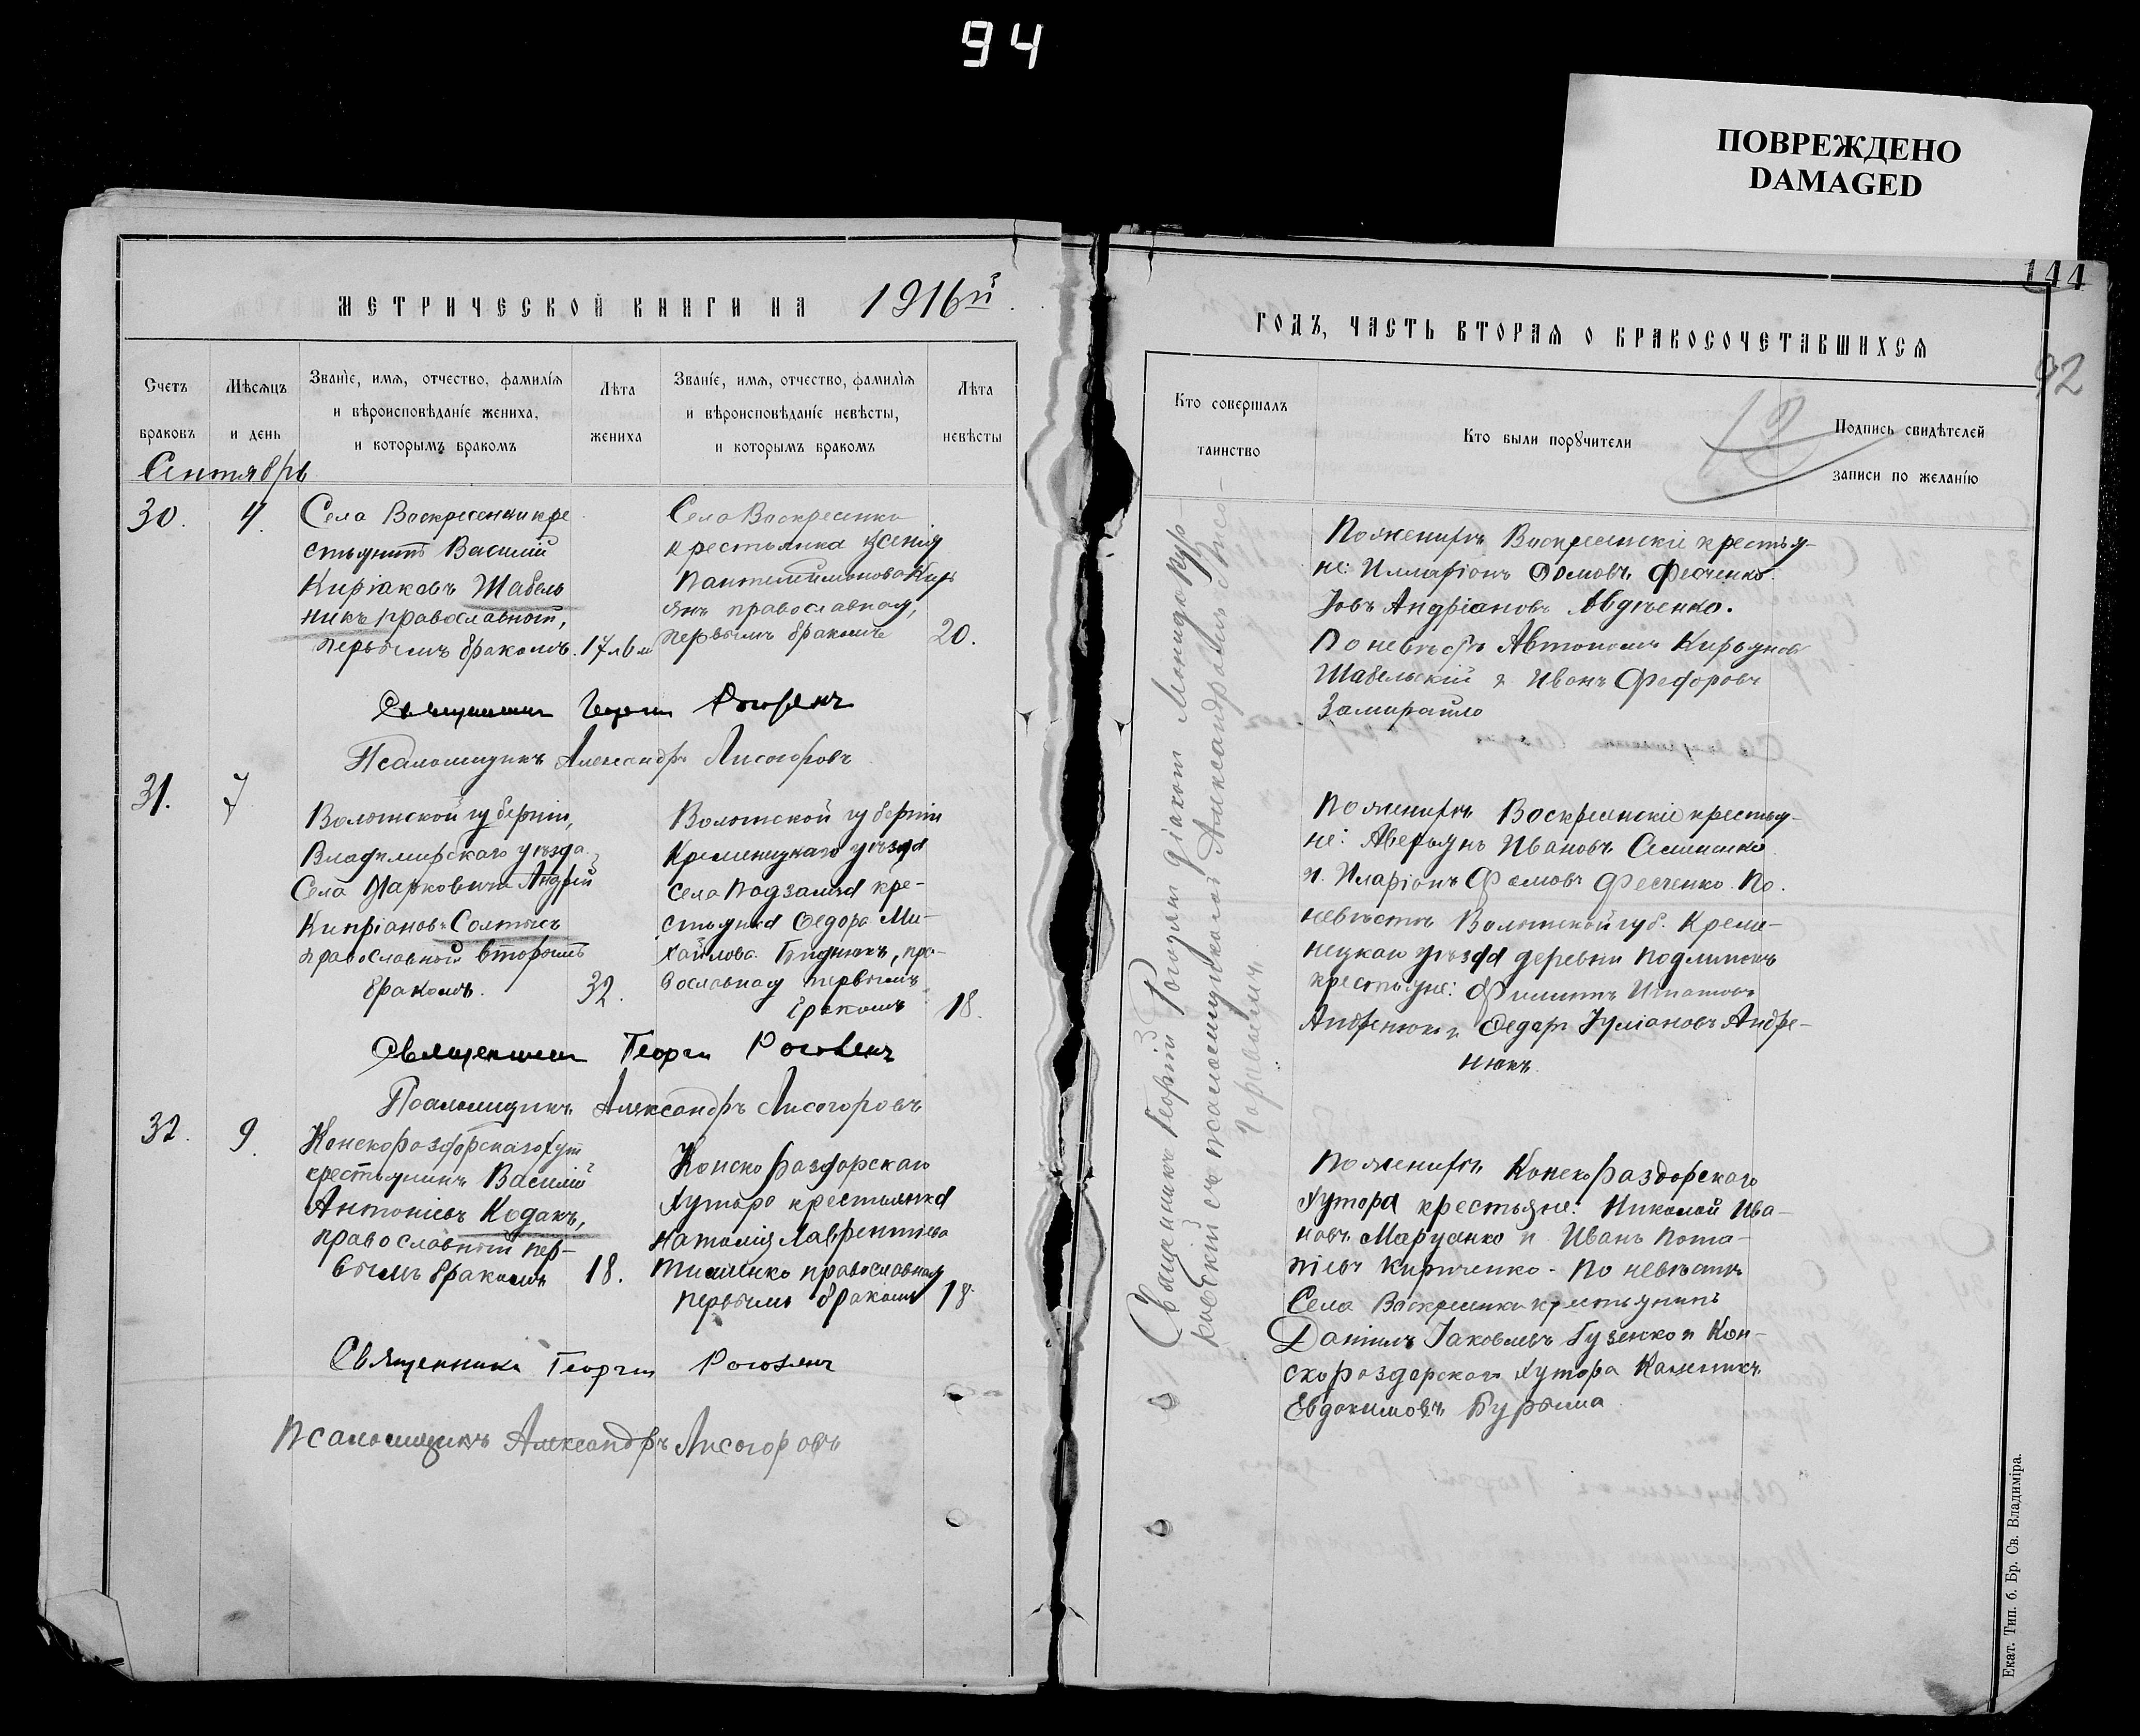 94
ПОВРЕЖДЕНО
DAMAGED
144
92
МЕТРИЧЕСКОЙ КНИГИ НА 1916й
Счетъ браковъ
Мѣсяцъ и день
Званіе, имя, отчество, фамилія
и вѣроисповѣданіе жениха,
и которымъ бракомъ
Лѣта жениха
Званіе, имя, отчество, фамилія
и вѣроисповѣданіе невѣсты,
и которымъ бракомъ
Лѣта невѣсты
Сентябрь
30. 4.
Села Воскресенки кре
стьянинъ Василій
Киріаковъ Шабель
никъ православный,
первымъ бракомъ. 17 л 6 м
Села Воскресенки
крестьянка Ксенія
Пантелеимонова Кирь
янъ православная,
первымъ бракомъ 20.
Священникъ Георгій
Псаломщикъ Александръ Лисогоровъ
31. 7
Волынской губерніи,
Владимирскаго уѣзда
Села Марковичи Андрей
Кипріановъ Солтысъ
православный вторымъ
бракомъ. 32.
Волынской губерніи
Кременецкаго уѣзда
села Подзамча кре-
стьянка Ѳедора Ми-
хайлова, пра-
вославная первымъ
бракомъ 18.
Священникъ Георгій Рогозянъ
Псаломщикъ Александръ Лисогоровъ
32. 9.
Конскораздорскаго хут
крестьянинъ Василій
Антоніевъ Кодакъ,
православный пер-
вымъ бракомъ 18.
Конскораздорскаго
хутора крестьянка
Наталія Лаврентіева
Тищенко православная
первымъ бракомъ 18.
Священникъ Георгій Рогозянъ
Псаломщикъ Александръ Лисогоровъ
ГОДЪ, ЧАСТЬ ВТОРАЯ О БРАКОСОЧЕТАВШИХСЯ
Кто совершалъ
таинство
Кто были поручители
12
Подпись свидѣтелей
записи по желанію
Священникъ Георгій Рогозянъ діаконъ
съ псаломщикомъ Александромъ Лисо-
горовымъ
По женихѣ Воскресенскіе крестья-
не: Илларіонъ Ѳомовъ Фесченко
Іовъ Андріановъ Авдѣенко.
По невѣстѣ Автономъ Кирьяновъ
Шабельскій и Иванъ Ѳедоровъ
Замирайло
По женихѣ Воскресенскіе крестья-
не: Аверьянъ Ивановъ Семененко
и Иларіонъ Ѳомовъ Фесченко. По
невѣстѣ Волынской губ. Креме-
нецкаго уѣзда деревни
крестьяне: Филиппъ Игнатовъ
Андренюкъ и Ѳедоръ Іуліановъ Андре-
нюкъ
По женихѣ Конскораздорскаго
хутора крестьяне: Николай Ива-
новъ Марущенко и Иванъ Пота-
піевъ Кириченко. По невѣстѣ
Села Воскресенки крестьянинъ
Даніилъ Іаковлевъ Гузенко и Кон-
скораздорскаго хутора Каленикъ
Евдокимовъ Бурыма
Екат. Тип. б. Бр. Св. Владиміра.